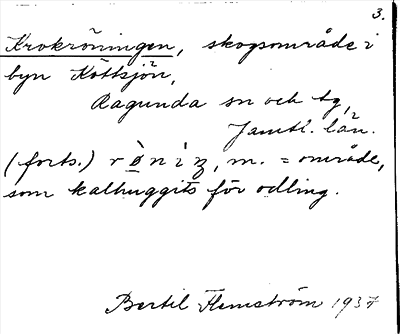 3.
Krokröningen, skogsområde i
byn Köttsjön,
Ragunda sn och tg,
Jamtl. län.
(forts.) r ø̀ n i z, m. = område,
som kalhuggits för odling.
Bertil Flemström 1937